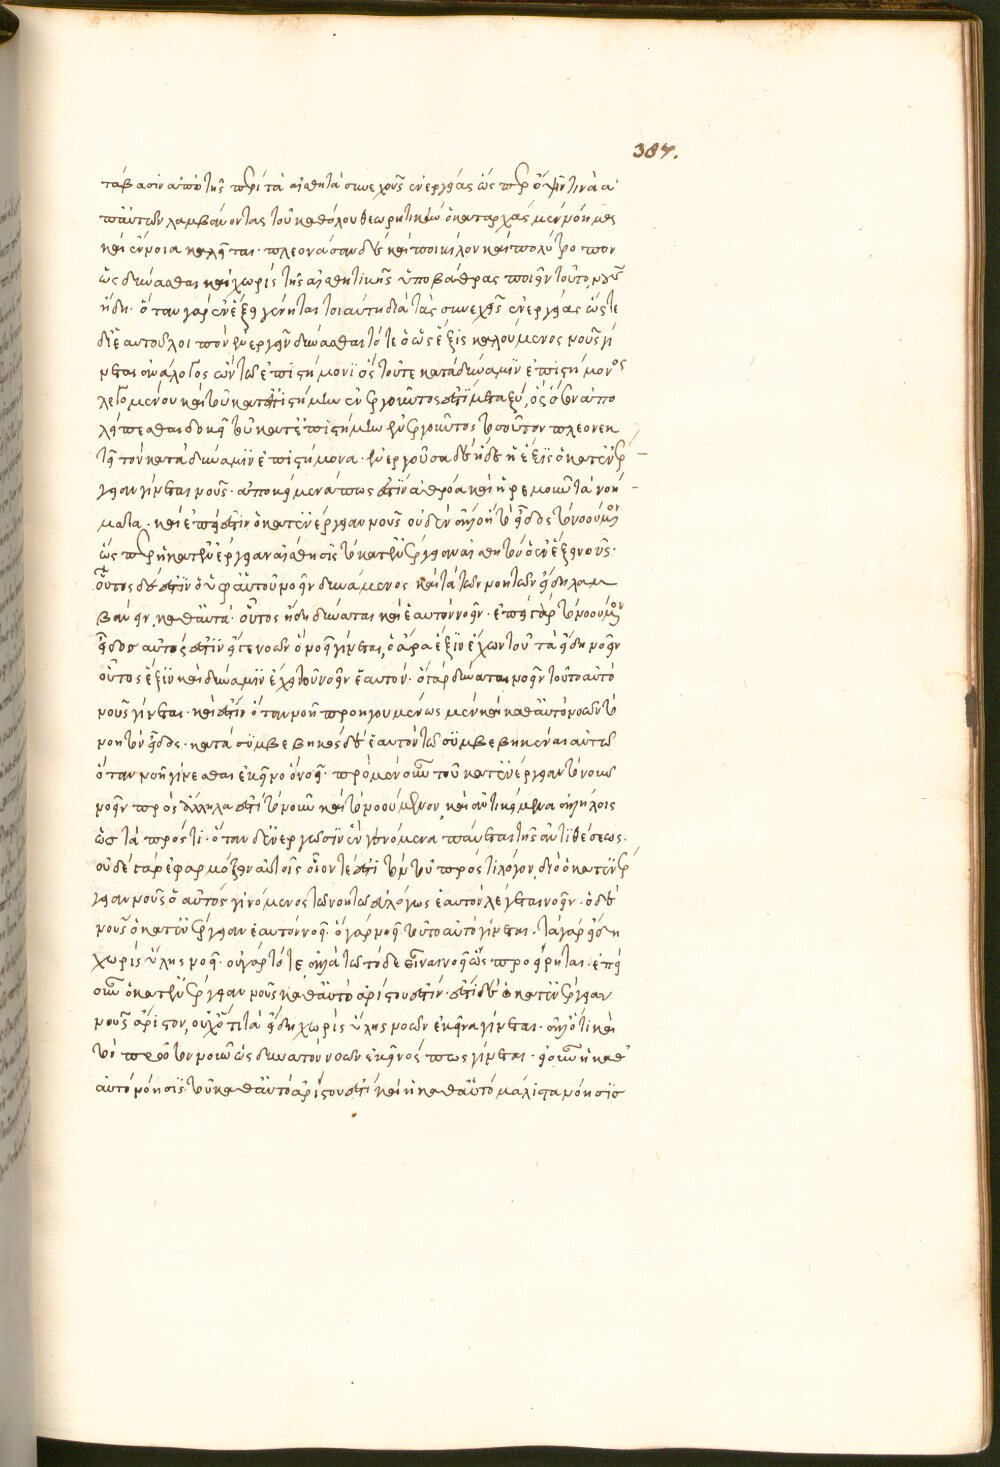 387.
τάβασιν ἀπὸ τῆς περὶ τὰ αἰσθητὰ συνεχοῦς ἐνεργείας ὥσπερ ὄψιν τινὰ ἀ
π' αὐτῶν λαμβάνοντας τοῦ καθόλου θεωρητικήν ὃ κατ' ἀρχὰς μὲν νόημα
καὶ ἔννοια καλεῖται· πλεονάσαν δὲ καὶ ποικίλον καὶ πολύτροπον
ὡς δύνασθαι καὶ χωρὶς τῆς αἰσθητικῆς ὑποβάθρας ποιεῖν τοῦτο, νοῦς
ἤδη· ὅταν γὰρ ἐν ἕξει γένηται τοιαύτη διὰ τὰς συνεχεῖς ἐνεργείας ὥστε
δι' ἑαυτοῦ λοιπὸν ἐνεργεῖν δύνασθαι τότε ὁ ὡς ἕξις καλούμενος νοῦς γί
νεται ἀνάλογος ὢν τῷ ἐπιστήμονι ὅς τοῦ τε κατὰ δύναμιν ἐπιστήμονος
λεγομένου καὶ τοῦ κατ' ἐπιστήμην ἐνεργοῦντος ἐστὶ μεταξύ, ὃς ὅσον ἀπο
λείπεσθαι δοκεῖ τοῦ κατ' ἐπιστήμην ἐνεργοῦντος τοσοῦτον πλεονεκ
τεῖ τὸν κατὰ δύναμιν ἐπιστήμονα· ἐνεργοῦσα δὲ ἥδε ἡ ἕξις ὁ κατ' ἐνέρ
γειαν γίνεται νοῦς· ἀποκείμενα πως ἐστὶν ἀθρόα καὶ ἠρεμοῦντα νοή
ματα· καὶ ἐπεί ἐστιν ὁ κατ' ἐνέργειαν νοῦς οὐδὲν ἄλλο ἢ τὸ εἶδος τὸ νοούμενον
ὥσπερ ἡ κατ' ἐνέργειαν αἴσθησις τὸ κατ' ἐνέργειαν αἰσθητὸν ὁ ἐν ἕξει νοῦς·
οὗτος δέ ἐστιν ὁ ὑφ' αὑτοῦ νοεῖν δυνάμενος καὶ τὰ τῶν νοητῶν εἴδη λαμ
βάνειν, καθ' αὑτά· οὗτος ἤδη δύναται καὶ ἑαυτὸν νοεῖν· ἐπεὶ γὰρ τὸ νοούμενον
εἶδος αὐτός ἐστιν εἴγε νοῶν ὃ νοεῖ γίνεται, ὁ ἄρα ἕξιν ἔχων τοῦ τὰ εἴδη νοεῖν
οὗτος ἕξιν καὶ δύναμιν ἔχει τοῦ νοεῖν ἑαυτόν· ὃ γὰρ δύναται νοεῖν τοῦτο αὐτὸ
νοῦς γίνεται· καὶ ἔστιν ὅταν νοῇ προηγουμένως μὲν καὶ καθ' αὑτὸ νοῶν τὸ
νοητὸν εἶδος· κατὰ συμβεβηκὸς δὲ ἑαυτὸν τῷ συμβεβηκέναι αὐτῷ
ὅταν νοῇ γίνεσθαι ἐκεῖνο ὃ νοεῖ· πρὸ μὲν οὖν τοῦ κατ' ἐνέργειαν τὸν νοῦν
νοεῖν πρὸς ἄλληλά ἐστι τὸ νοοῦν καὶ τὸ νοούμενον καὶ ἀντικείμενα ἀλλήλοις
ὡς τὰ πρός τι· ὅταν δ' ἐνεργῶσιν ἓν γινόμενα παύεται τῆς ἀντιθέσεως·
οὐδὲ γὰρ ἐφαρμόζειν αὐτοῖς οἷόν τέ ἐστι τὸν τοῦ πρός τι λόγον, διὸ ὁ κατ' ἐνέρ
γειαν νοῦς ὁ αὐτὸς γινόμενος τῷ νοητῷ εὐλόγως ἑαυτὸν λέγεται νοεῖν· ὁ δὲ
νοῦς ὁ κατ' ἐνέργειαν ἑαυτὸν νοεῖ· ὃ γὰρ νοεῖ τοῦτο αὐτὸ γίνεται· τὰ γὰρ εἴδη
χωρὶς ὕλης νοεῖ· οὐ γὰρ τότε, ἀλλὰ τὸ τόδε εἶναι νοεῖ ὡς προείρηται· ἐπεὶ
οὖν ὁ κατ' ἐνέργειαν νοῦς καθ' αὑτὸ ἀρίστου ἐστίν· ἔστι δὲ ὁ κατ' ἐνέργειαν
νοῦς ἄριστον, οὐχ ὅτι τὰ εἴδη χωρὶς ὕλης νοῶν ἐκεῖνα γίνεται· ἀλλ' ὅτι καὶ
τὸ πρῶτον νοοῦν ὡς δυνατὸν νοῶν ἐκεῖνός πως γίνεται· εἰ οὖν ἡ καθ'
αὑτὸ νόησις τοῦ καθ' αὑτὸ ἀρίστου ἐστὶ καὶ ἡ καθ' αὑτὸ μάλιστα νόησις